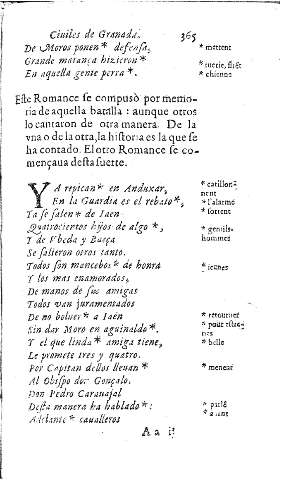 Ciuiles de Granada. 365
De Moros ponen* defensa, * mettent
Grande matança hizieron * * tuerie,
En aquella gente perra *. * chienne
Este Romance se compusò por memo-
ria de aquella batalla : aunque otros
lo cantaron de otra manera. De la
vna o de la otra, la historia es la que se
ha contado. El otro Romance se co-
mençaua desta suerte.
YA repican* en Anduxar, * carillon-
nent
En la Guardia es el rebato*, * l'alarme
Ya se salen* de Iaen * sortent
Quatrocientos hijos de algo *, * gentils-
hommes
Y de Vbeda y Baeça
Se salieron otros tanto.
Todos son mancebos* de honra * ieunes
Y los mas enamorados,
De manos de sus amigas
Todos van juramentados
De no boluer* a Iaen * retourner
Sin dar Moro en aguinaldo*.
nes
Y el que linda* amiga tiene, * belle
Le promete tres y quatro.
Por Capitan dellos lleuan* * menent
Al Obispo don Gonçalo.
Don Pedro Carauajal
Desta manera ha hablado*: * parlé
Adelante* caualleros
A a